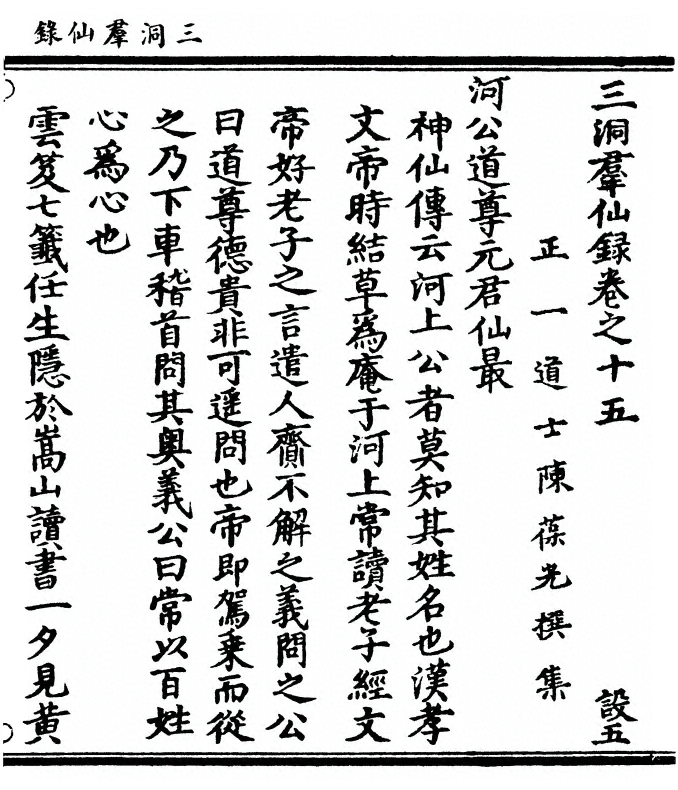 三洞羣仙錄
三洞羣仙録卷之十五 設五
正一道士陳葆光撰集
河公道尊元君仙最
神仙傳云河上公者莫知其姓名也漢孝
文帝時結草爲庵于河上常讀老子經文
帝好老子之言遣人齎不解之義問之公
曰道尊德貴非可遥問也帝即駕乗而從
之乃下車稽首問其奥義公曰常以百姓
心爲心也
雲笈七籤任生隱於嵩山讀書一夕見黄